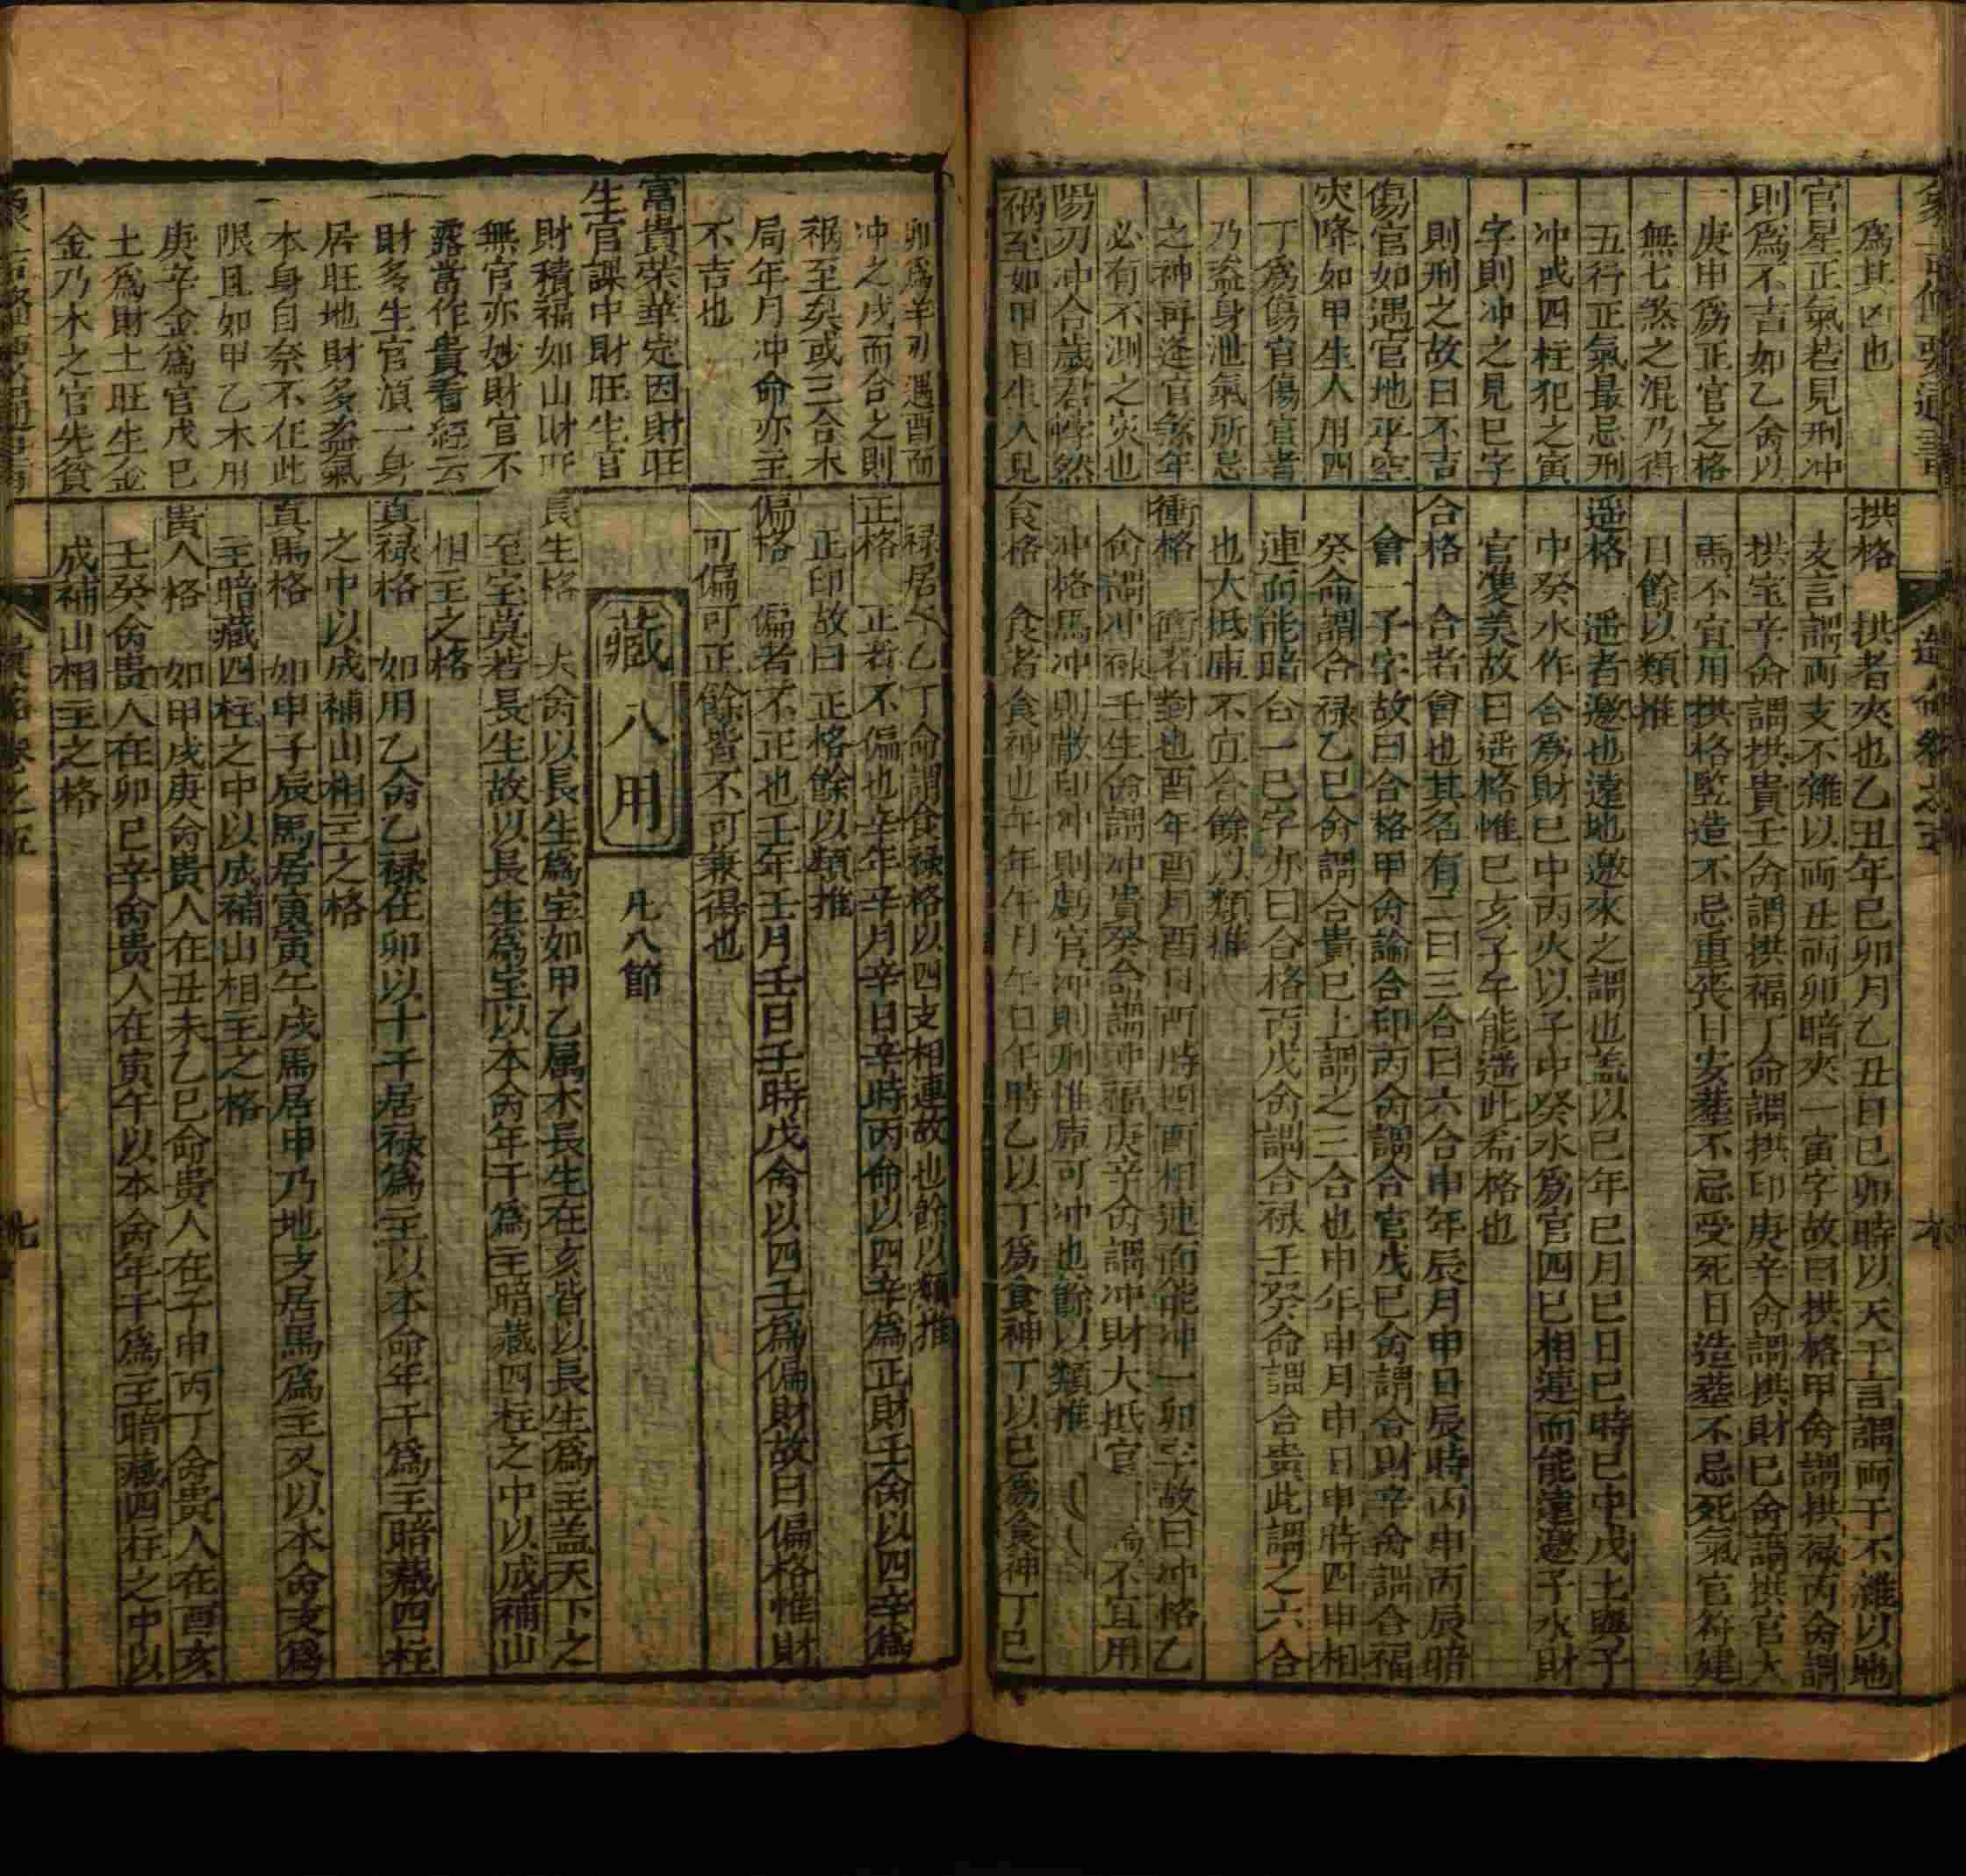 爲其凶也
官星正氣若見刑冲
則爲不吉如乙命以
庚申爲正官之格
無七煞之混乃得
五行正氣最忌刑
冲或四柱犯之寅
字則冲之見巳字
則刑之故曰不吉
傷官如遇官地平空
災降如甲生人用四
丁爲傷官傷官者
乃盗身泄氣所忌
之神再逢官煞年
必有不測之災也
陽刃冲合歲君哱然
禍至如甲日生人見
拱格　拱者夾也乙丑年巳卯月乙丑日巳卯時以天干言謂兩干不雜以地
支言謂兩支不雜以兩丑兩卯暗夾一寅字故曰拱格甲命謂拱禄丙命謂
拱宝辛命謂拱貴壬命謂拱福丁命謂拱印庚辛命謂拱財巳命謂拱官大
馬不宜用拱格竪造不忌重丧日安𦵏不忌受死日造𦵏不忌死氣官符建
日餘以類推
遥格　遥者邀也遠地邀來之謂也盖以巳年巳月巳日巳時巳中戊土與子
中癸水作合爲財巳中丙火以子中癸水爲官四巳相連而能遠邀子水財
官雙美故曰遥格惟巳亥子午能遥此希格也
合格　合者會也其名有二曰三合曰六合申年辰月申日辰時丙申丙辰暗
會一子字故曰合格甲命論合印丙命謂合官戊巳命謂合財辛命謂合福
癸命謂合禄乙巳命謂合貴巳上謂之三合也申年申月申日申時四申相
連而能暗合一巳字亦曰合格丙戊命謂合禄壬癸命謂合貴此謂之六合
也大抵庫不宜合餘以類推
衝格　衝者對也酉年酉月酉日酉時四酉相連而能冲一卯字故曰冲格乙
命謂冲禄壬生命謂冲貴癸命謂冲福庚辛命謂冲財大抵官不宜用
冲格馬冲則散印冲則剋官冲則刑惟庫可冲也餘以類推
食格　食者食神也午年午月午日午時乙以丁爲食神丁以巳爲食神丁巳
卯爲羊刃遇酉而
冲之戌而合之則
禍至矣或三合木
局年月冲命亦主
不吉也
富貴荣華定因財旺
生官課中財旺生官
財積福如山財旺
無官亦妙財官不
露當作貴看經云
財多生官湏一身
居旺地財多盗氣
本身自奈不任此
限且如甲乙木用
庚辛金爲官戊巳
土爲財土旺生金
金乃木之官先貧
禄居午乙丁命謂食禄格以四支相連故也餘以類推
正格　正者不偏也辛年辛月辛日辛時丙命以四辛爲正財壬命以四辛爲
正印故曰正格餘以類推
偏格　偏者不正也壬年壬月壬日壬時戊命以四壬爲偏財故曰偏格惟財
可偏可正餘皆不可兼得也
藏八用　凡八節
長生格　夫命以長生爲宝如甲乙属木長生在亥皆以長生爲主盖天下之
至宝莫若長生故以長生爲宝以本命年干爲主暗藏四柱之中以成補山
相主之格
真禄格　如用乙命乙禄在卯以十干居禄爲主以本命年干爲主暗藏四柱
之中以成補山相主之格
真馬格　如申子辰馬居寅寅午戌馬居申乃地支居馬爲主又以本命支爲
主暗藏四柱之中以成補山相主之格
貴人格　如甲戊庚命貴人在丑未乙巳命貴人在子申丙丁命貴人在酉亥
壬癸命貴人在卯巳辛命貴人在寅午以本命年干爲主暗藏四柱之中以
成補山相主之格